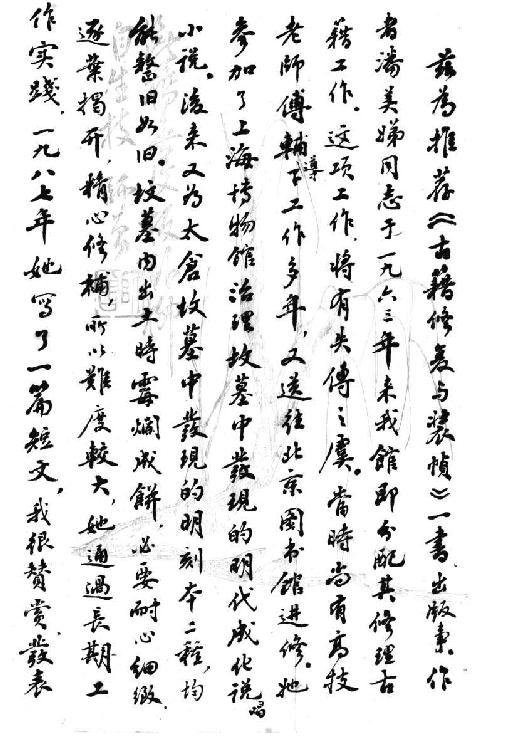 兹為推荐《古籍修复与装幀》一書出版事。作
者潘美娣同志于一九六三年来我館即分配其修理古
籍工作。这项工作，将有失傳之虞。當時尚有高技
老師傅輔導下工作多年，又送往北京图书館進修。她
参加了上海博物館治理坟墓中發現的明代成化說唱
小説。後来又为太倉坟墓中發現的明刻本二種，均
能整旧如旧。坟墓内出土時霉爛成餅，必要耐心细緻，
逐葉揭开，精心修補，所以難度較大，她通過長期工
作实踐，一九八七年她写了一篇短文，我很賛赏，發表